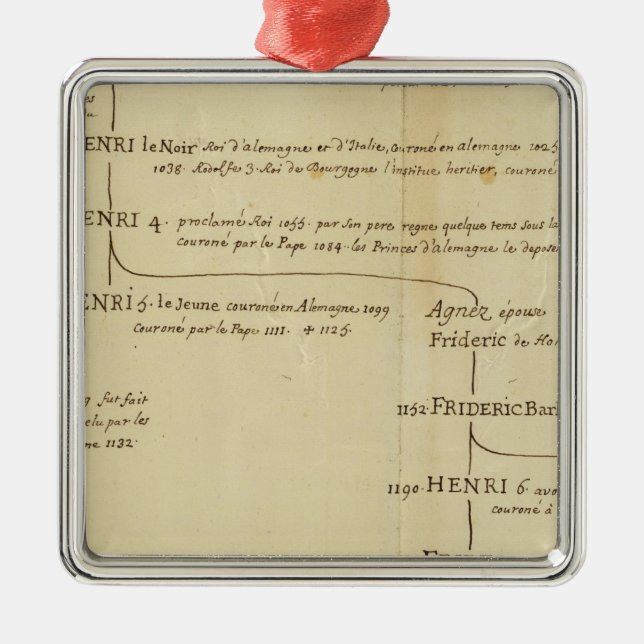 ENRI le Noir Roi d'alemagne et d'Italie, couroné en alemagne 1025
1038. Rodolfe 3. Roi de Bourgogne l'institue heritier, couroné
ENRI 4. proclamé Roi 1055. par son pere regne quelque tems sous la
couroné par le Pape 1084.. les Princes d'alemagne le depose
ENRI 5. le Jeune couroné en Alemagne 1099
couroné par le Pape 1111. ✝ 1125.
Agnez épouse
Frideric de Ho
fut fait
elu par les
ne 1132.
1152. FRIDERIC Bar
1190. HENRI 6. avo
couroné à